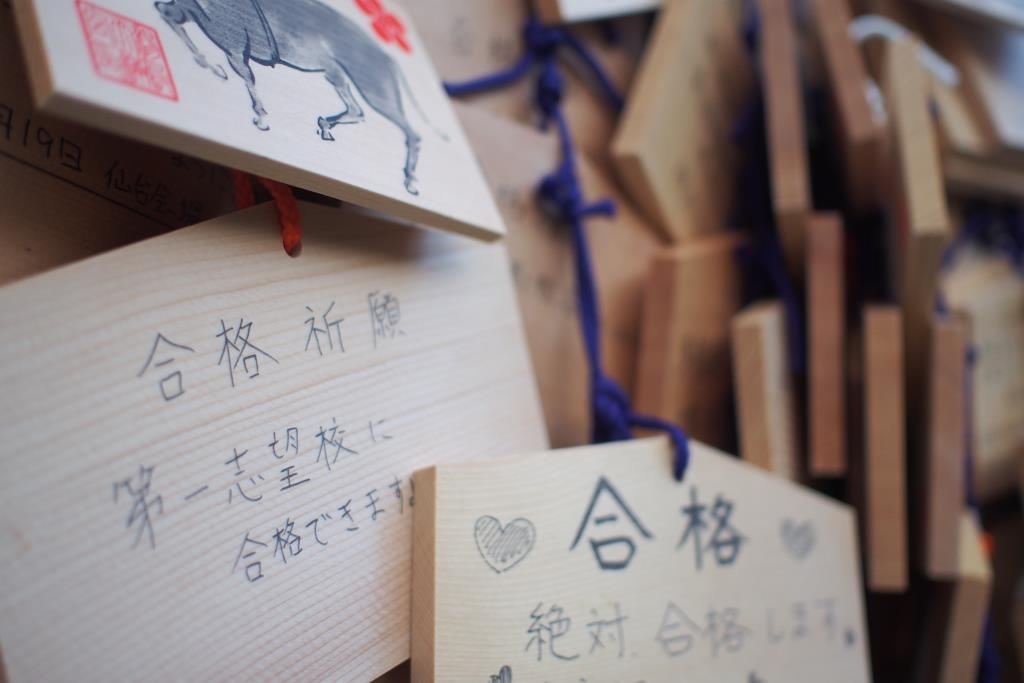 月19日 仙台会場
合格祈願
第一志望校に
合格できます
♡ 合格 ♡
絶対合格します。